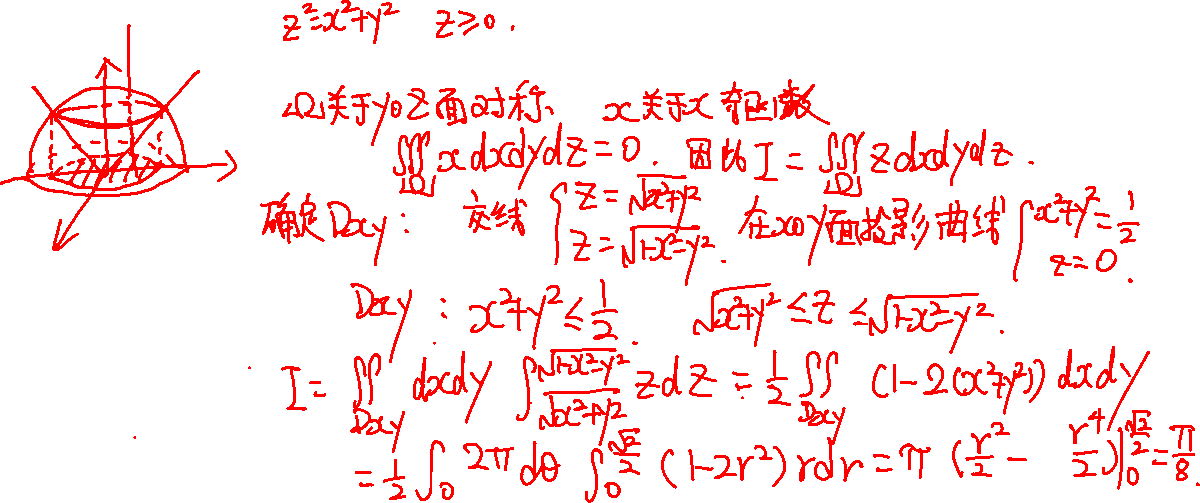 z²=x²+y² z≥0.
Ω关于yoz面对称、 x关于x奇函数
∭_Ω x dxdydz=0. 因此I=∭_Ω z dxdydz.
确定Dxy: 交线 { z=√(x²+y²) z=√(1-x²-y²). 在xoy面投影曲线 { x²+y²=1/2 z=0.
Dxy: x²+y²≤1/2. √(x²+y²)≤z≤√(1-x²-y²).
I=∬_Dxy dxdy ∫_√(x²+y²)^√(1-x²-y²) zdz=1/2∬_Dxy (1-2(x²+y²)) dxdy
=1/2∫_0^2π dθ ∫_0^(√2/2) (1-2r²)rdr=π(r²/2-r⁴/2)|_0^(√2/2)=π/8.